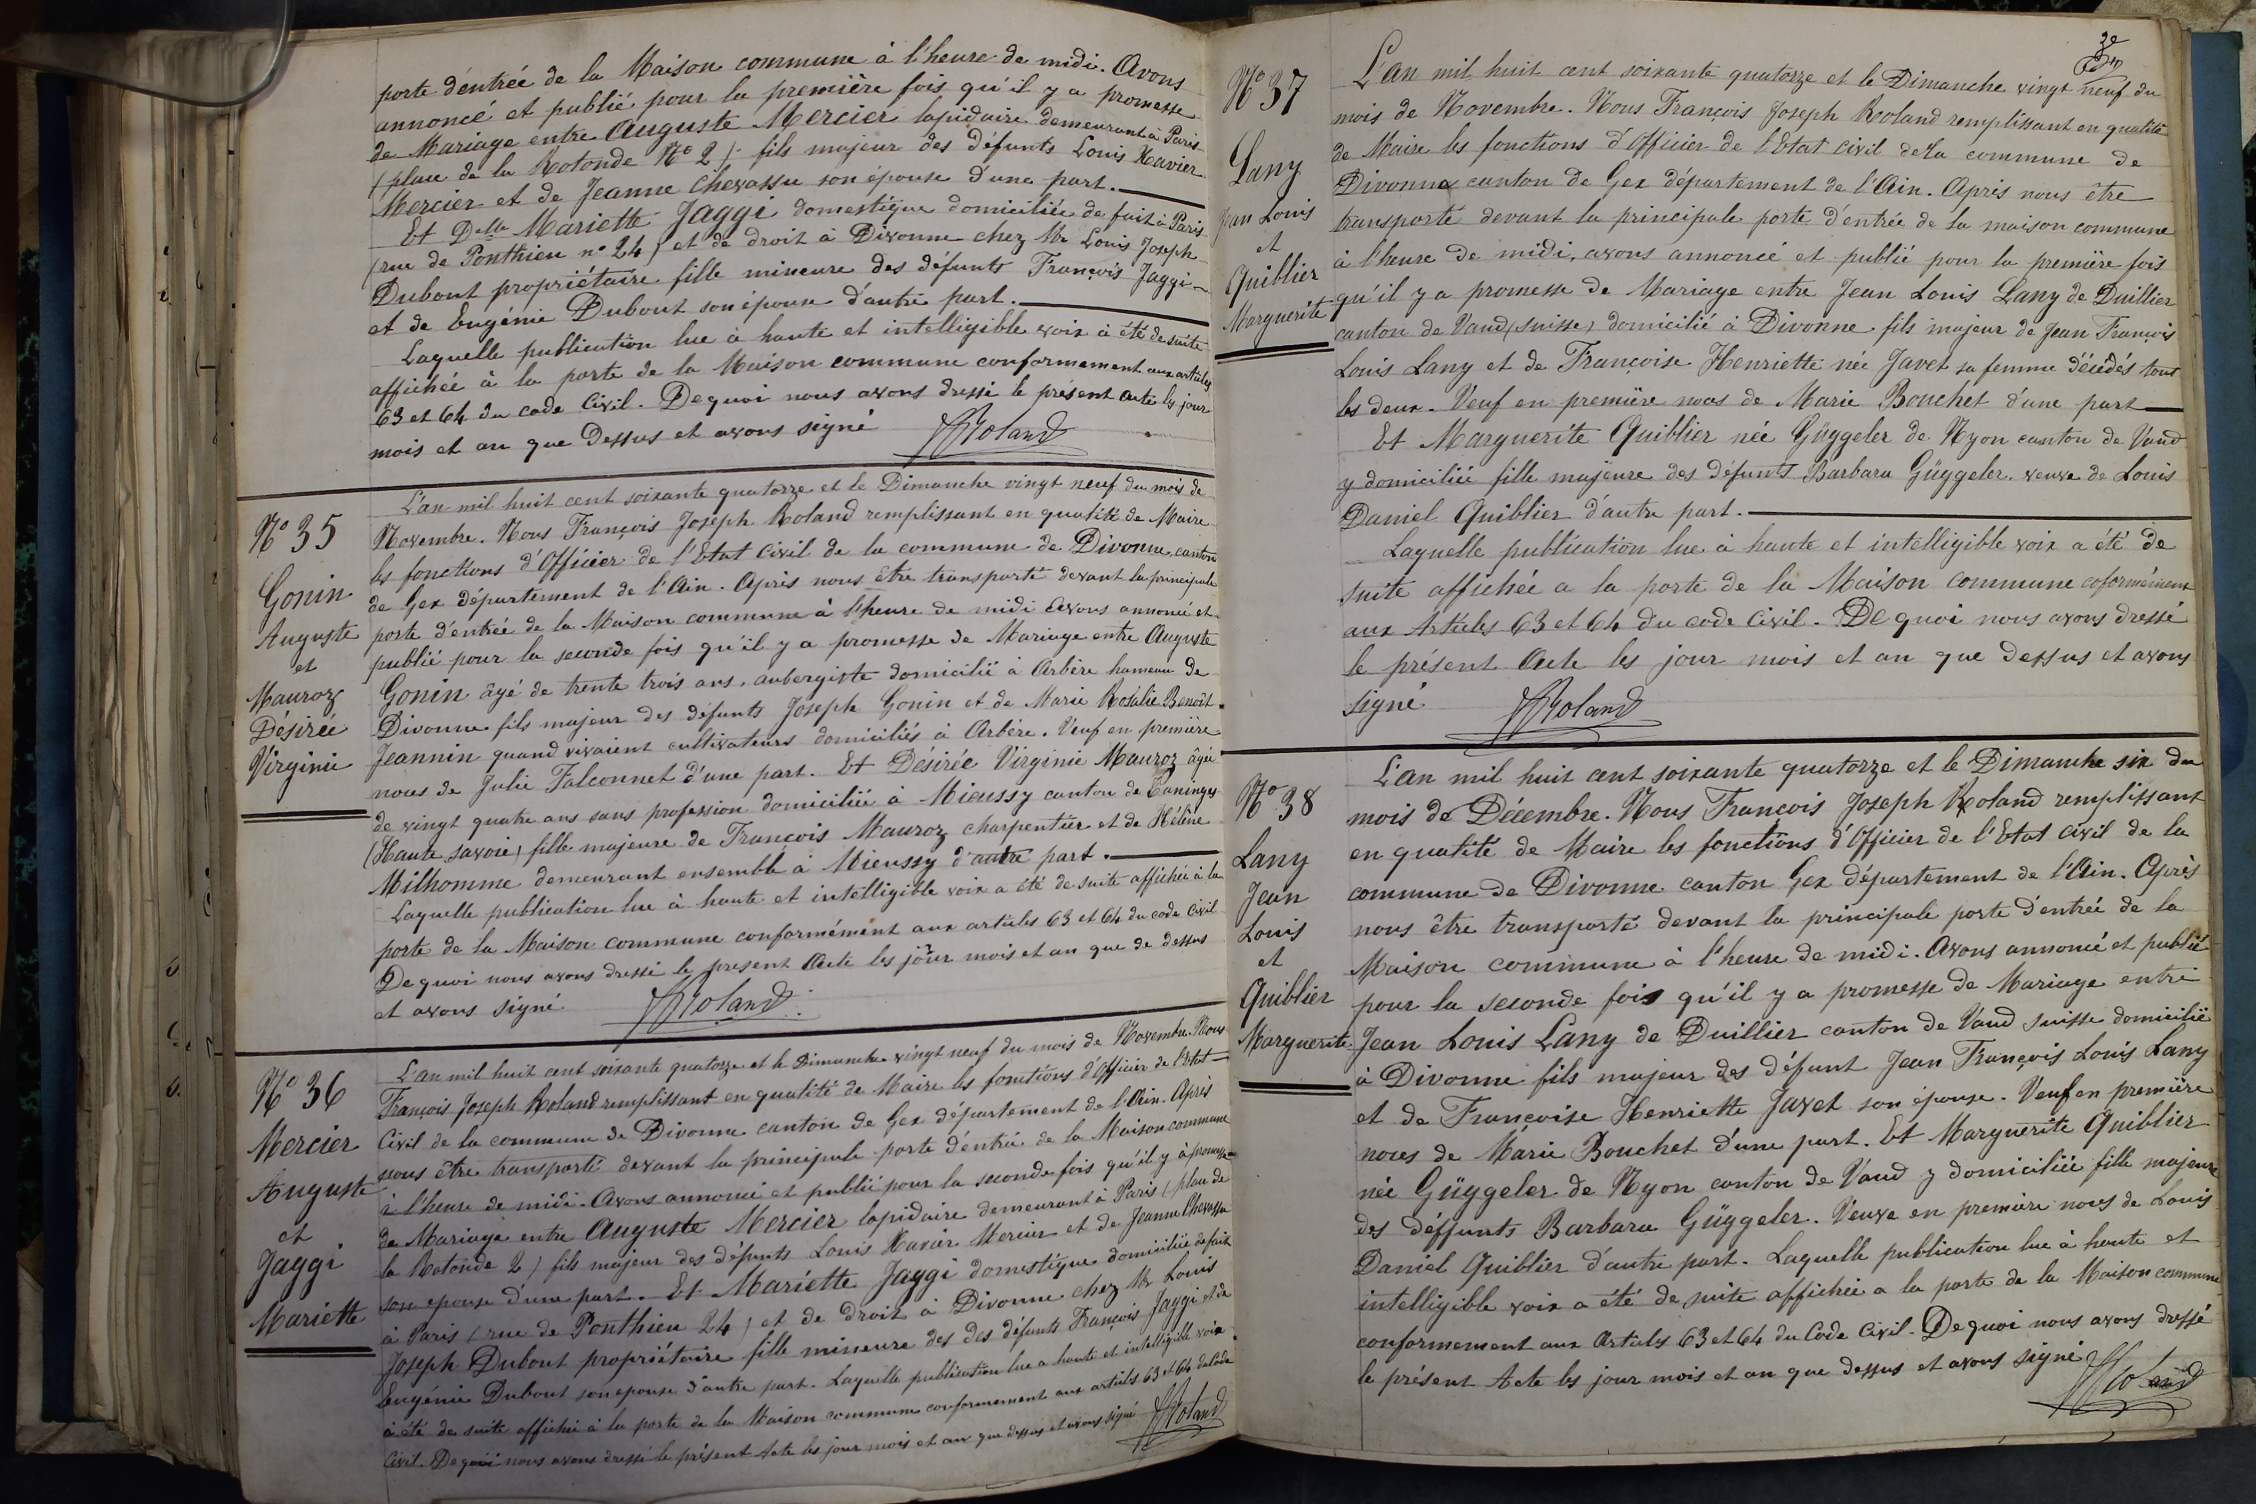 porte d'entrée de la Maison commune à l'heure de midi. Avons
annoncé et publié pour la première fois qu'il y a promesse
de Mariage entre Auguste Mercier lapidaire demeurant à Paris
(place de la Rotonde No 2) fils majeur des défunts Louis Xavier
Mercier et de Jeanne Chevassu son épouse d'une part.
Et Delle Mariette Jaggi domestique domiciliée de fait à Paris
(rue de Ponthieu no 24) et de droit à Divonne chez Mr Louis Joseph
Dubout propriétaire fille mineure des défunts François Jaggi
et de Eugénie Dubout son épouse d'autre part.
Laquelle publication lue à haute et intelligible voix à été de suite
affichée à la porte de la Maison commune conformement aux articles
63 et 64 du code Civil. De quoi nous avons dressé le présent acte les jour
mois et an que dessus et avons signé FRoland
No 35
Gonin
Auguste
et
Mauroz
Désirée
Virginie
L'an mil huit cent soixante quatorze et le Dimanche vingt neuf du mois de
Novembre. Nous François Joseph Roland remplissant en qualité de Maire
les fonctions d'Officier de l'Etat Civil de la commune de Divonne, canton
de Gex département de l'Ain. Après nous être transporté devant la principale
porte d'entrée de la Maison commune à l'heure de midi Avons annoncé et
publié pour la seconde fois qu'il y a promesse de Mariage entre Auguste
Gonin âgé de trente trois ans, aubergiste domicilié à Arbère hameau de
Divonne fils majeur des défunts Joseph Gonin et de Marie Rosalie Benoît
Jeannin quand vivaient cultivateurs domiciliés à Arbère. Veuf en première
noces de Julie Falconnet d'une part. Et Désirée Virginie Mauroz âgée
de vingt quatre ans sans profession domiciliée à Mieussy canton de Taninges
(Haute Savoie) fille majeure de François Mauroz charpentier et de Hélène
Milhomme demeurant ensemble à Mieussy d'autre part.
Laquelle publication lue à haute et intelligible voix a été de suite affichée à la
porte de la Maison commune conformément aux articles 63 et 64 du code Civil
De quoi nous avons dressé le present Acte les jour mois et an que de dessus
et avons signé FRoland
No 36
Mercier
Auguste
et
Jaggi
Mariette
L'an mil huit cent soixante quatorze et le Dimanche vingt neuf du mois de Novembre. Nous
François Joseph Roland remplissant en qualité de Maire les fonctions d'Officier de l'Etat
Civil de la commune de Divonne canton de Gex département de l'Ain. Après
nous être transporté devant la principale porte d'entrée de la Maison commune
à l'heure de midi. Avons annoncé et publié pour la seconde fois qu'il y à promesse
de Mariage entre Auguste Mercier lapidaire demeurant à Paris (place de
la Rotonde 2) fils majeur des défunts Louis Xavier Mercier et de Jeanne Chevassu
son epouse d'une part. Et Mariette Jaggi domestique domiciliée de fait
à Paris (rue de Ponthieu 24) et de droit à Divonne chez Mr Louis
Joseph Dubout propriétaire fille mineure des des défunts François Jaggi et de
Eugénie Dubout son epouse d'autre part. Laquelle publication lue a haute et intelligible voix
à été de suite affichée à la porte de la Maison commune conformement aux articles 63 et 64 du Code
Civil. De quoi nous avons dressé le présent Acte les jour mois et an que dessus et avons signé FRoland
No 37
Lany
Jean Louis
et
Quiblier
Marguerite
L'An mil huit cent soixante quatorze et le Dimanche vingt neuf du
mois de Novembre. Nous François Joseph Roland remplissant en qualité
de Maire les fonctions d'Officier de l'Etat civil de la commune de
Divonne canton de Gex département de l'Ain. Après nous être
transporté devant la principale porte d'entrée de la maison commune
à l'heure de midi, avons annoncé et publié pour la première fois
qu'il y a promesse de Mariage entre Jean Louis Lany de Duillier
canton de Vaud (suisse) domicilié à Divonne fils majeur de Jean François
Louis Lany et de Françoise Henriette née Javet sa femme décédés tous
les deux. Veuf en première noces de Marie Bouchet d'une part
Et Marguerite Quiblier née Güggeler de Nyon canton de Vaud
y domiciliée fille majeure des défunts Barbara Güggeler, veuve de Louis
Daniel Quiblier d'autre part.
Laquelle publication lue à haute et intelligible voix a été de
suite affichée a la porte de la Maison commune coformément
aux Articles 63 et 64 du code Civil. De quoi nous avons dressé
le présent Acte les jour mois et an que dessus et avons
signé FRoland
No 38
Lany
Jean
Louis
et
Quiblier
Marguerite
L'an mil huit cent soixante quatorze et le Dimanche six du
mois de Décembre. Nous François Joseph Roland remplissant
en qualité de Maire les fonctions d'Officier de l'Etat civil de la
commune de Divonne canton Gex département de l'Ain. Après
nous être transporté devant la principale porte d'entrée de la
Maison commune à l'heure de midi. Avons annoncé et publié
pour la seconde fois qu'il y a promesse de Mariage entre
Jean Louis Lany de Duillier canton de Vaud suisse domicilié
à Divonne fils majeur des défunt Jean François Louis Lany
et de Françoise Henriette Javet son épouse. Veuf en première
noces de Marie Bouchet d'une part. Et Marguerite Quiblier
née Güggeler de Nyon canton de Vaud y domiciliée fille majeure
des déffunts Barbara Güggeler. Veuve en première noces de Louis
Daniel Quiblier d'autre part. Laquelle publication lue à haute et
intelligible voix a été de suite affichée a la porte de la Maison commune
conformement aux Articles 63 et 64 du Code Civil. De quoi nous avons dressé
le présent Acte les jour mois et an que dessus et avons signé FRoland